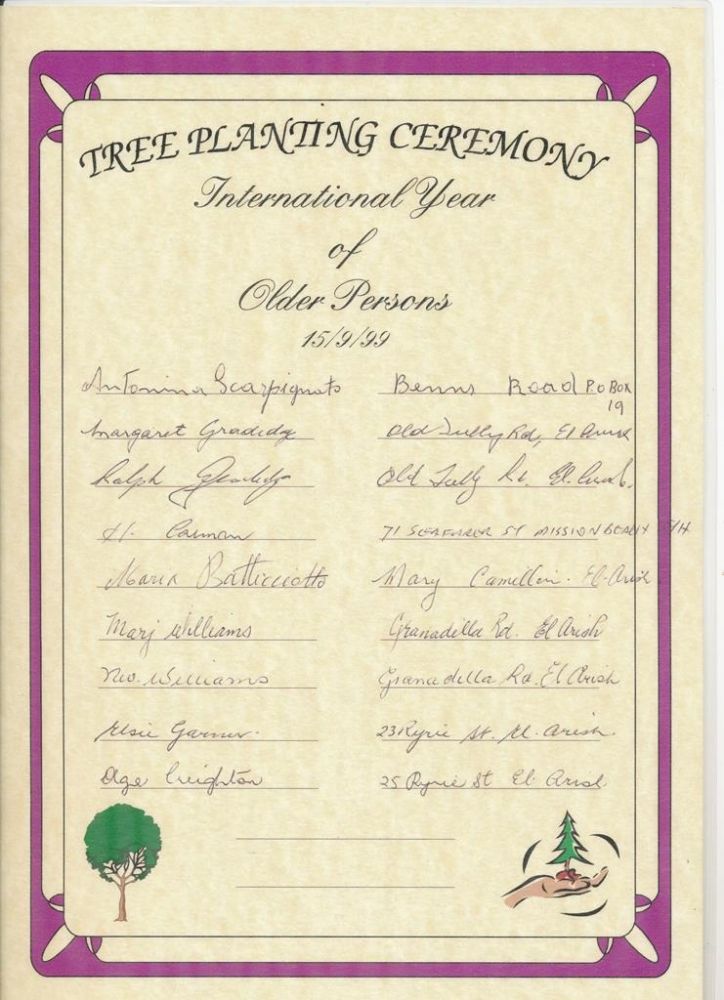 TREE PLANTING CEREMONY
International Year
of
Older Persons
15/9/99
Antonina Scarpignato Benns Road P.O Box
19
Margaret Gradidge Old Tully Rd, El Arish
Ralph Gradidge Old Tully Rd. El Arish.
H. 71 SEAFARER ST MISSION BEACH
Maria Batticciotto Mary Camilleri. El-Arish
Marj Williams Granadilla Rd. El Arish
Williams Granadilla Rd. El Arish
Elsie Garner. 23 Ryrie St. El. Arish.
Creighton 25 Ryrie St El. Arish.